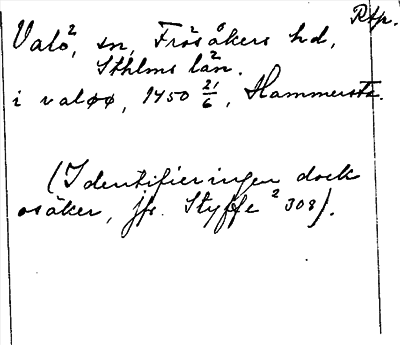 Rtp.
Valö², sn, Frösåkers hd,
Sthlms län.
i valøø, 1450 21/6, Hammersta.
(Identifieringen dock
osäker, jfr. Styffe² 308).